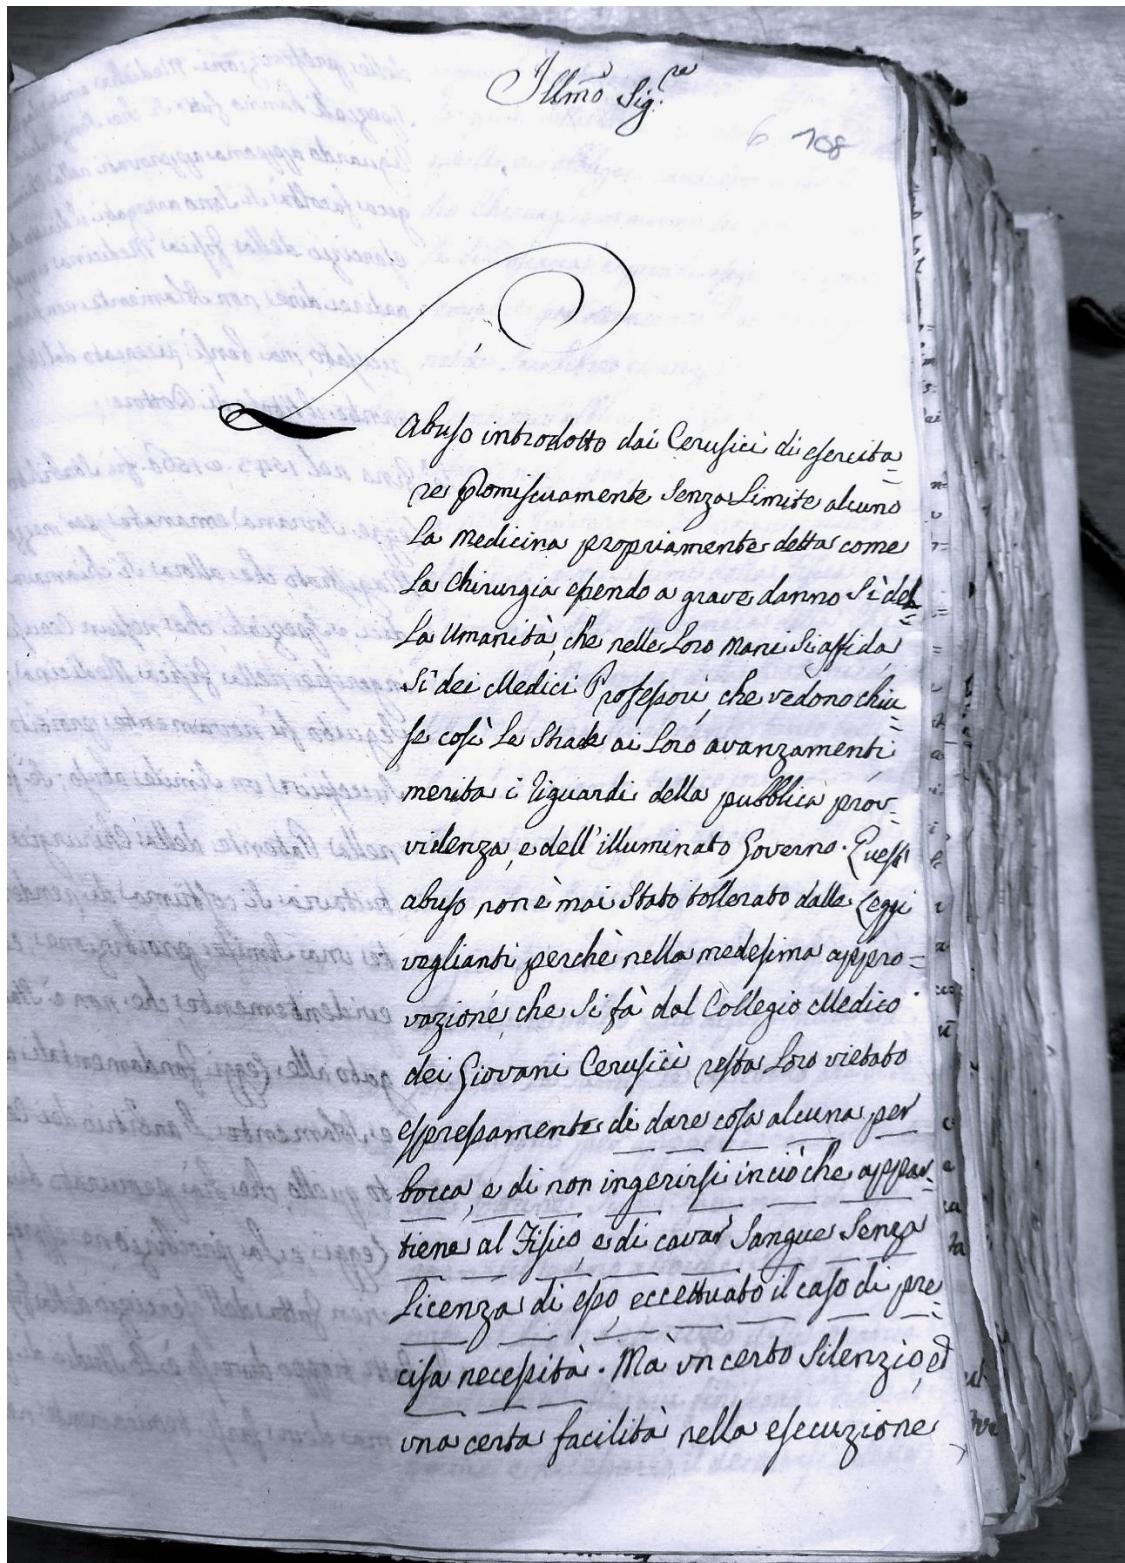 Illmo Sig.re
6 108
L'
abuso introdotto dai Cerusici di esercita=
re promiscuamente senza Limite alcuno
La Medicina propriamente detta come
La Chirurgia essendo a grave danno Sì del=
La Umanità, che nelle Loro Mani Si affida,
Sì dei Medici Professori, che vedono chiu=
se così Le Strade ai Loro avanzamenti
merita i riguardi della pubblica prov=
videnza, e dell'illuminato Governo. Quest'
abuso non è mai Stato tollerato dalle Leggi
veglianti perchè nella medesima appro=
vazione, che Si fà dal Collegio Medico
dei Giovani Cerusici resta Loro vietato
espressamente di dare cosa alcuna per
bocca, e di non ingerirsi in ciò che appar=
tiene al Fisico, e di cavar Sangue Senza
Licenza di esso, eccettuato il caso di pre=
cisa necessità. Mà un certo Silenzio, ed
una certa facilità nella esecuzione